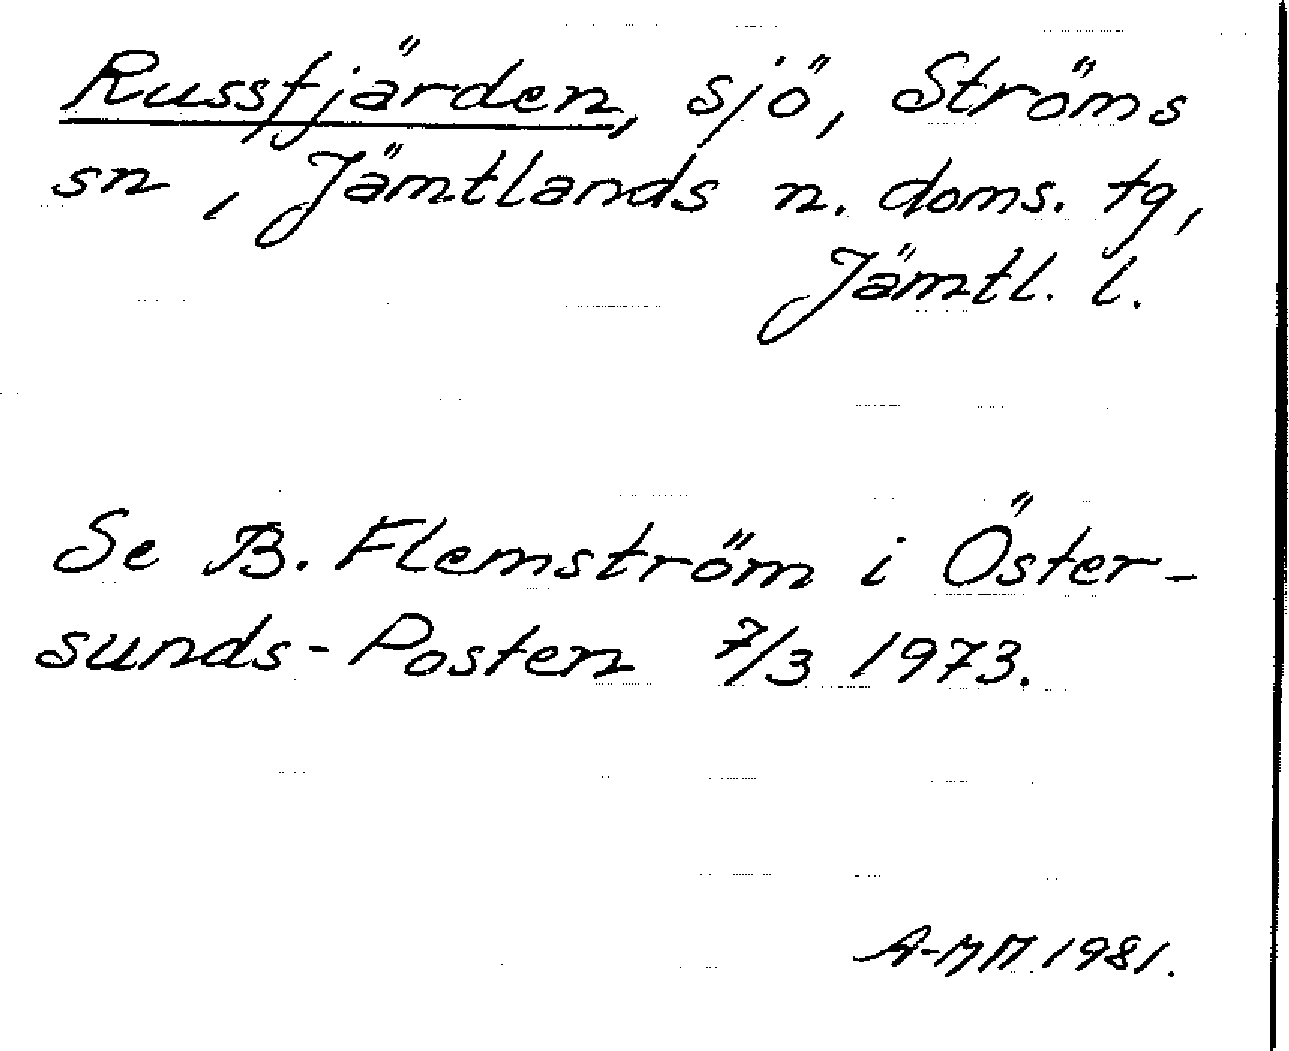 Russfjärden, sjö, Ströms
sn, Jämtlands n. doms. tg,
Jämtl. l.
Se B. Flemström i Öster-
sunds-Posten 7/3 1973.
A-MM 1981.